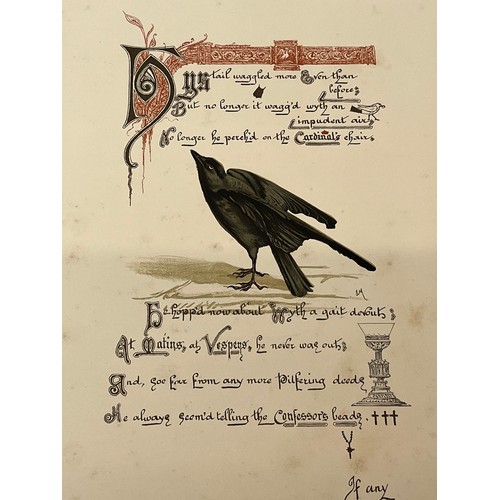 Hys tail waggled more Even than
before;
But no longer it wagg'd wyth an
impudent air,
No longer he perch'd on the Cardinal's chair.
He hopp'd now about Wyth a gait devout;
At Matins, at Vespers, he never was out;
And, soe farr from any more Pilfering deeds
He always seem'd telling the Confessor's beads,
If any